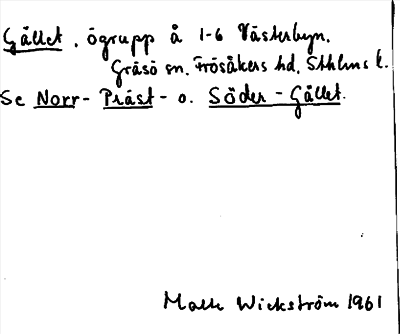 Gållet, ögrupp å 1-6 Västerbyn,
Gräsö sn, Frösåkers hd, Sthlms l.
Se Norr- Präst- o. Söder-Gållet.
Malte Wickström 1961